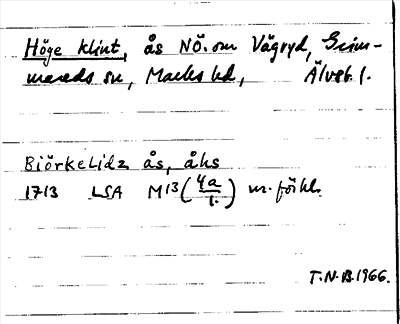 Höge klint, ås NÖ. om Vägryd, Grim-
mareds sn, Marks hd, Älvsb. l.
Biörkelidz ås, åks
1713 LSA M13 (4a/1.) nr. förkl.
T.N.B. 1966.